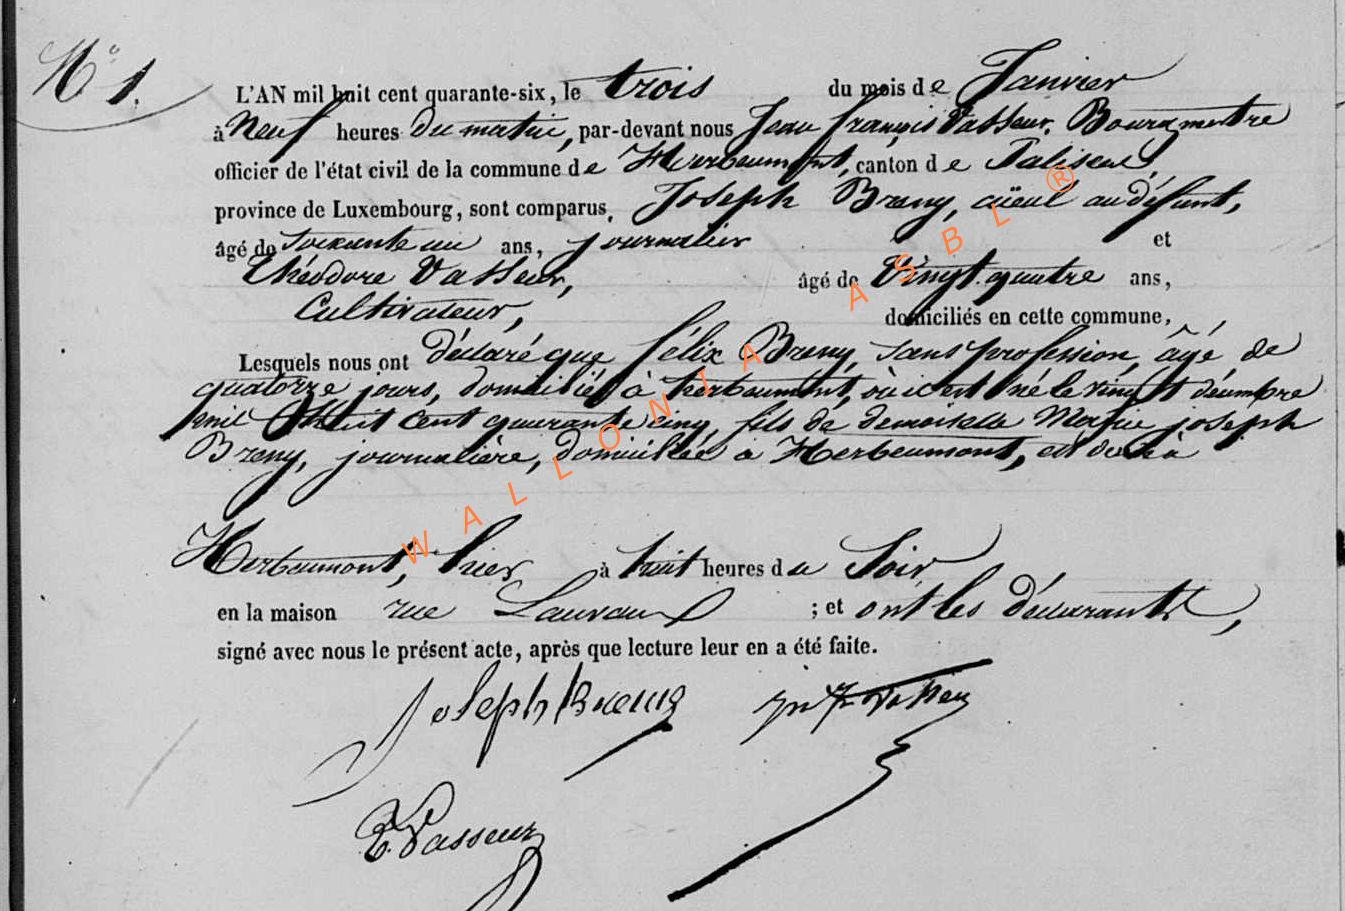 N° 1.
L'AN mil huit cent quarante-six, le trois du mois de Janvier
à Neuf heures du matin, par-devant nous Jean françois Vasseur, Bourgmestre
officier de l'état civil de la commune de Herbeumont, canton de Paliseul,
province de Luxembourg, sont comparus, Joseph Breny, aïeul au défunt,
âgé de soixante un ans, journalier et
Théodore Vasseur, âgé de Vingt quatre ans,
Cultivateur, domiciliés en cette commune,
Lesquels nous ont déclaré que félix Breny, sans profession, âgé de
quatorze jours, domicilié à herbeumont, où il est né le vingt décembre
mil huit cent quarante cinq, fils de demoiselle Marie joseph
Breny, journalière, domiciliée à Herbeumont, est décédé à
Herbeumont, hier à huit heures du Soir
en la maison rue ; et ont les déclarants,
signé avec nous le présent acte, après que lecture leur en a été faite.
Joseph Breny
T. Vasseur
WALLONIA ASBL ®